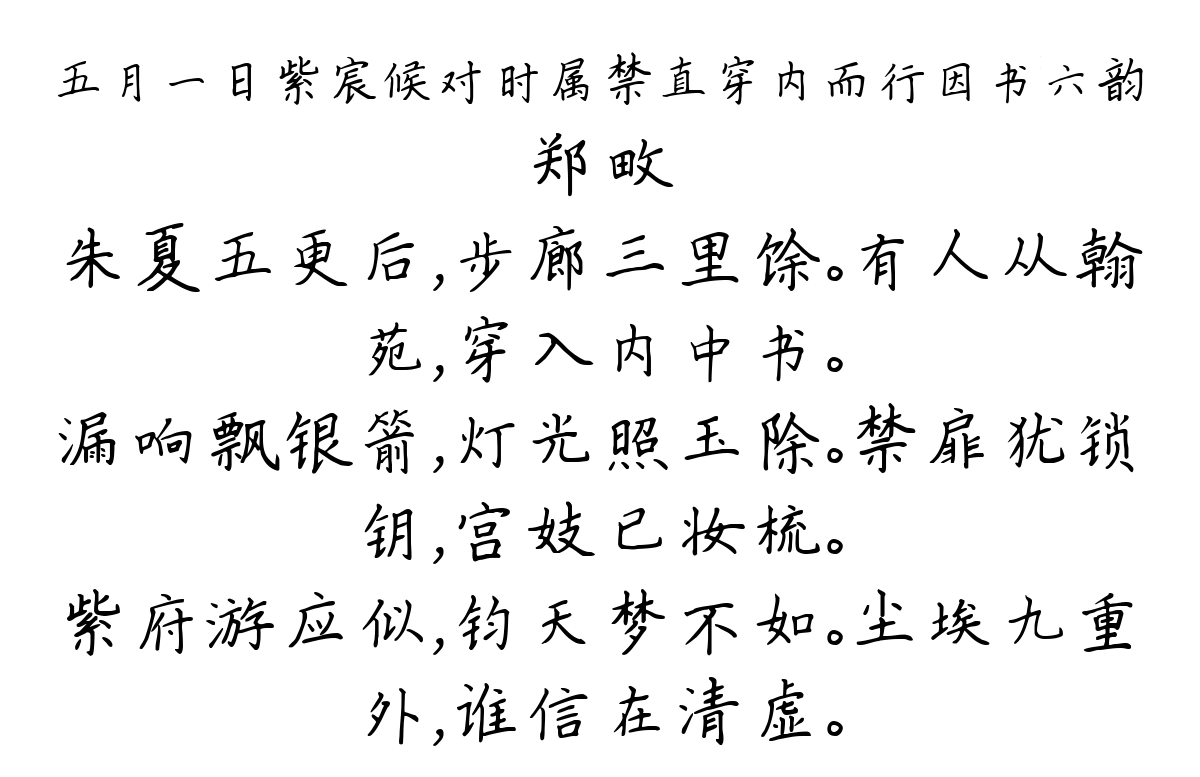 五月一日紫宸候对时属禁直穿内而行因书六韵
郑畋
朱夏五更后,步廊三里馀。有人从翰
苑,穿入内中书。
漏响飘银箭,灯光照玉除。禁扉犹锁
钥,宫妓已妆梳。
紫府游应似,钧天梦不如。尘埃九重
外,谁信在清虚。